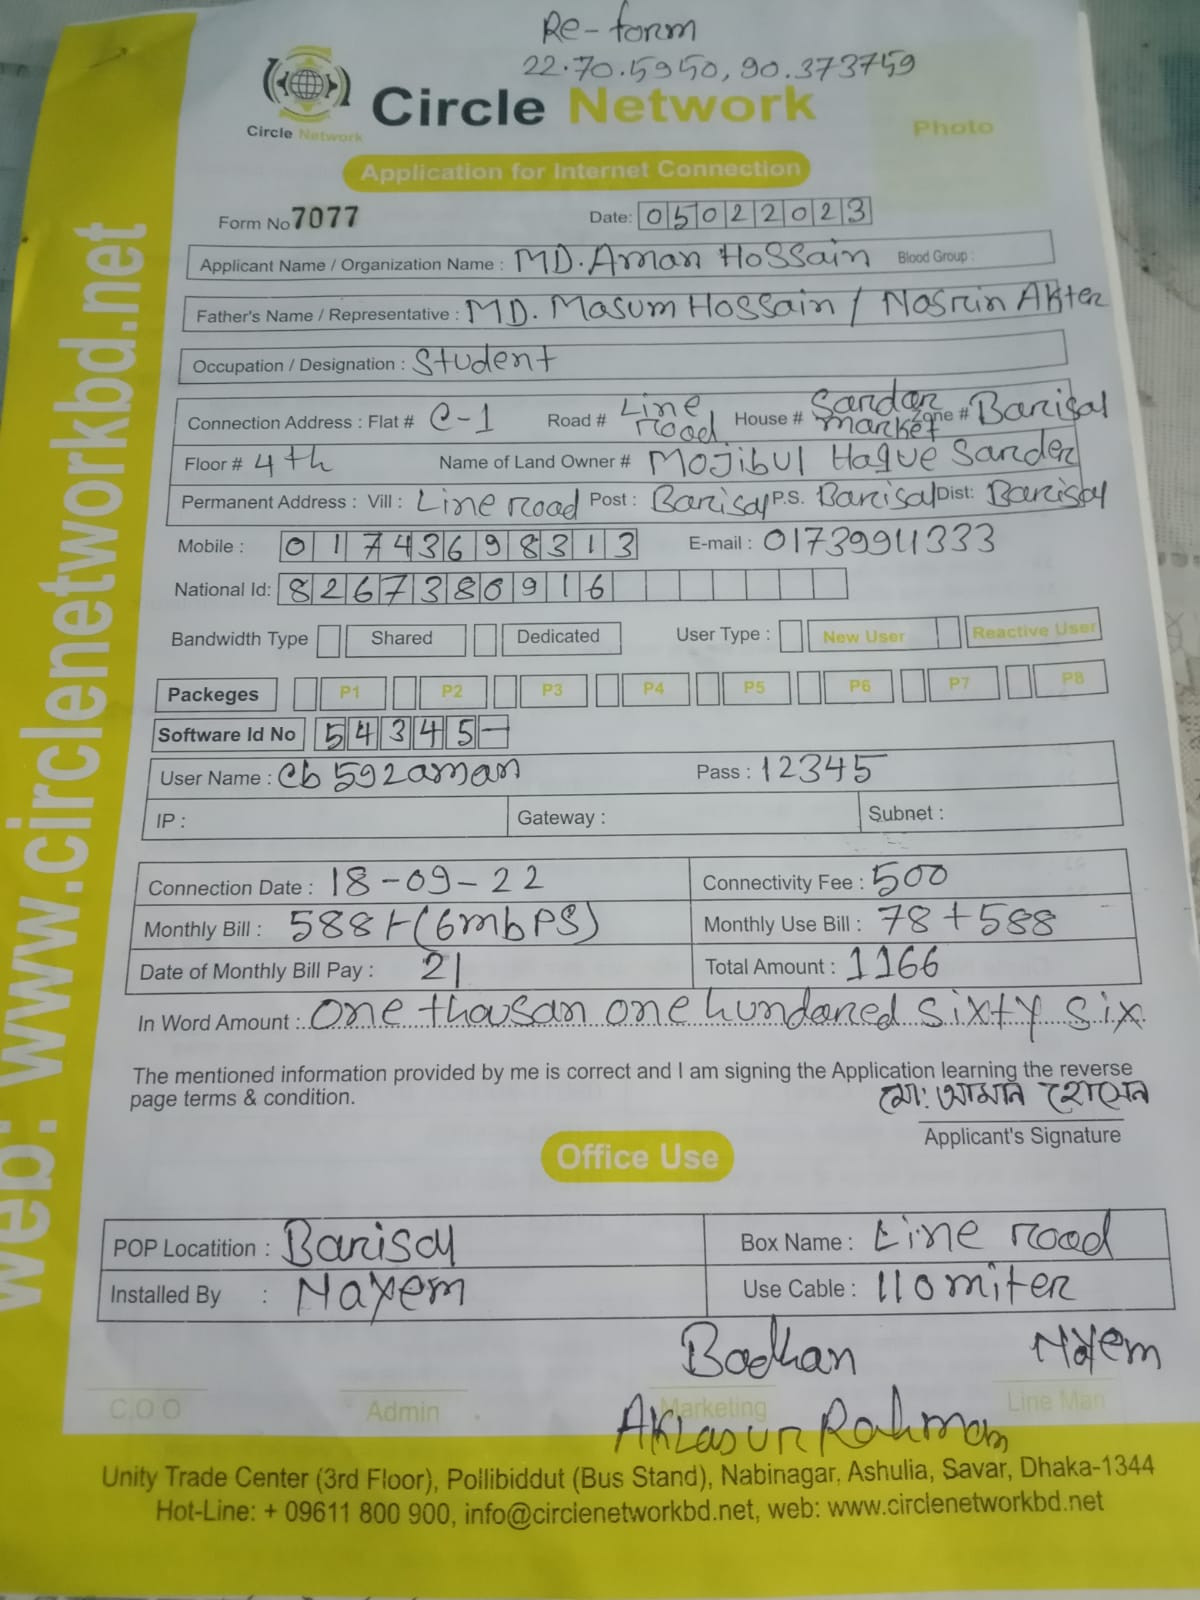 Re-form
22.70.5950, 90.373759
Circle Network
Circle Network
Photo
Application for Internet Connection
Form No 7077 Date: 05022023
Applicant Name / Organization Name : MD. Aman Hossain Blood Group :
Father's Name / Representative : MD. Masum Hossain / Nasrin Akter
Occupation / Designation : Student
Connection Address : Flat # C-1 Road # Line road House # Sardar market Zone # Barisal
Floor # 4th Name of Land Owner # Mojibul Haque Sarder
Permanent Address : Vill : Line road Post : Barisal P.S. Barisal Dist: Barisal
Mobile : 01743698313 E-mail : 01739911333
National Id: 8267380916
Bandwidth Type Shared Dedicated User Type : New User Reactive User
Packeges P1 P2 P3 P4 P5 P6 P7 P8
Software Id No 54345-
User Name : cb592aman Pass : 12345
IP : Gateway : Subnet :
Connection Date : 18-09-22 Connectivity Fee : 500
Monthly Bill : 588/-(6mbps) Monthly Use Bill : 78+588
Date of Monthly Bill Pay : 21 Total Amount : 1166
In Word Amount : One thousan one hundared sixty six
The mentioned information provided by me is correct and I am signing the Application learning the reverse
page terms & condition.
মো: আমান হোসেন
Applicant's Signature
Office Use
POP Locatition : Barisal Box Name : Line road
Installed By : Nayem Use Cable : 110 miter
Badhan Nayem
C.O.O Admin Marketing Line Man
Aklasur Rahman
Unity Trade Center (3rd Floor), Pollibiddut (Bus Stand), Nabinagar, Ashulia, Savar, Dhaka-1344
Hot-Line: + 09611 800 900, info@circlenetworkbd.net, web: www.circlenetworkbd.net
web: www.circlenetworkbd.net